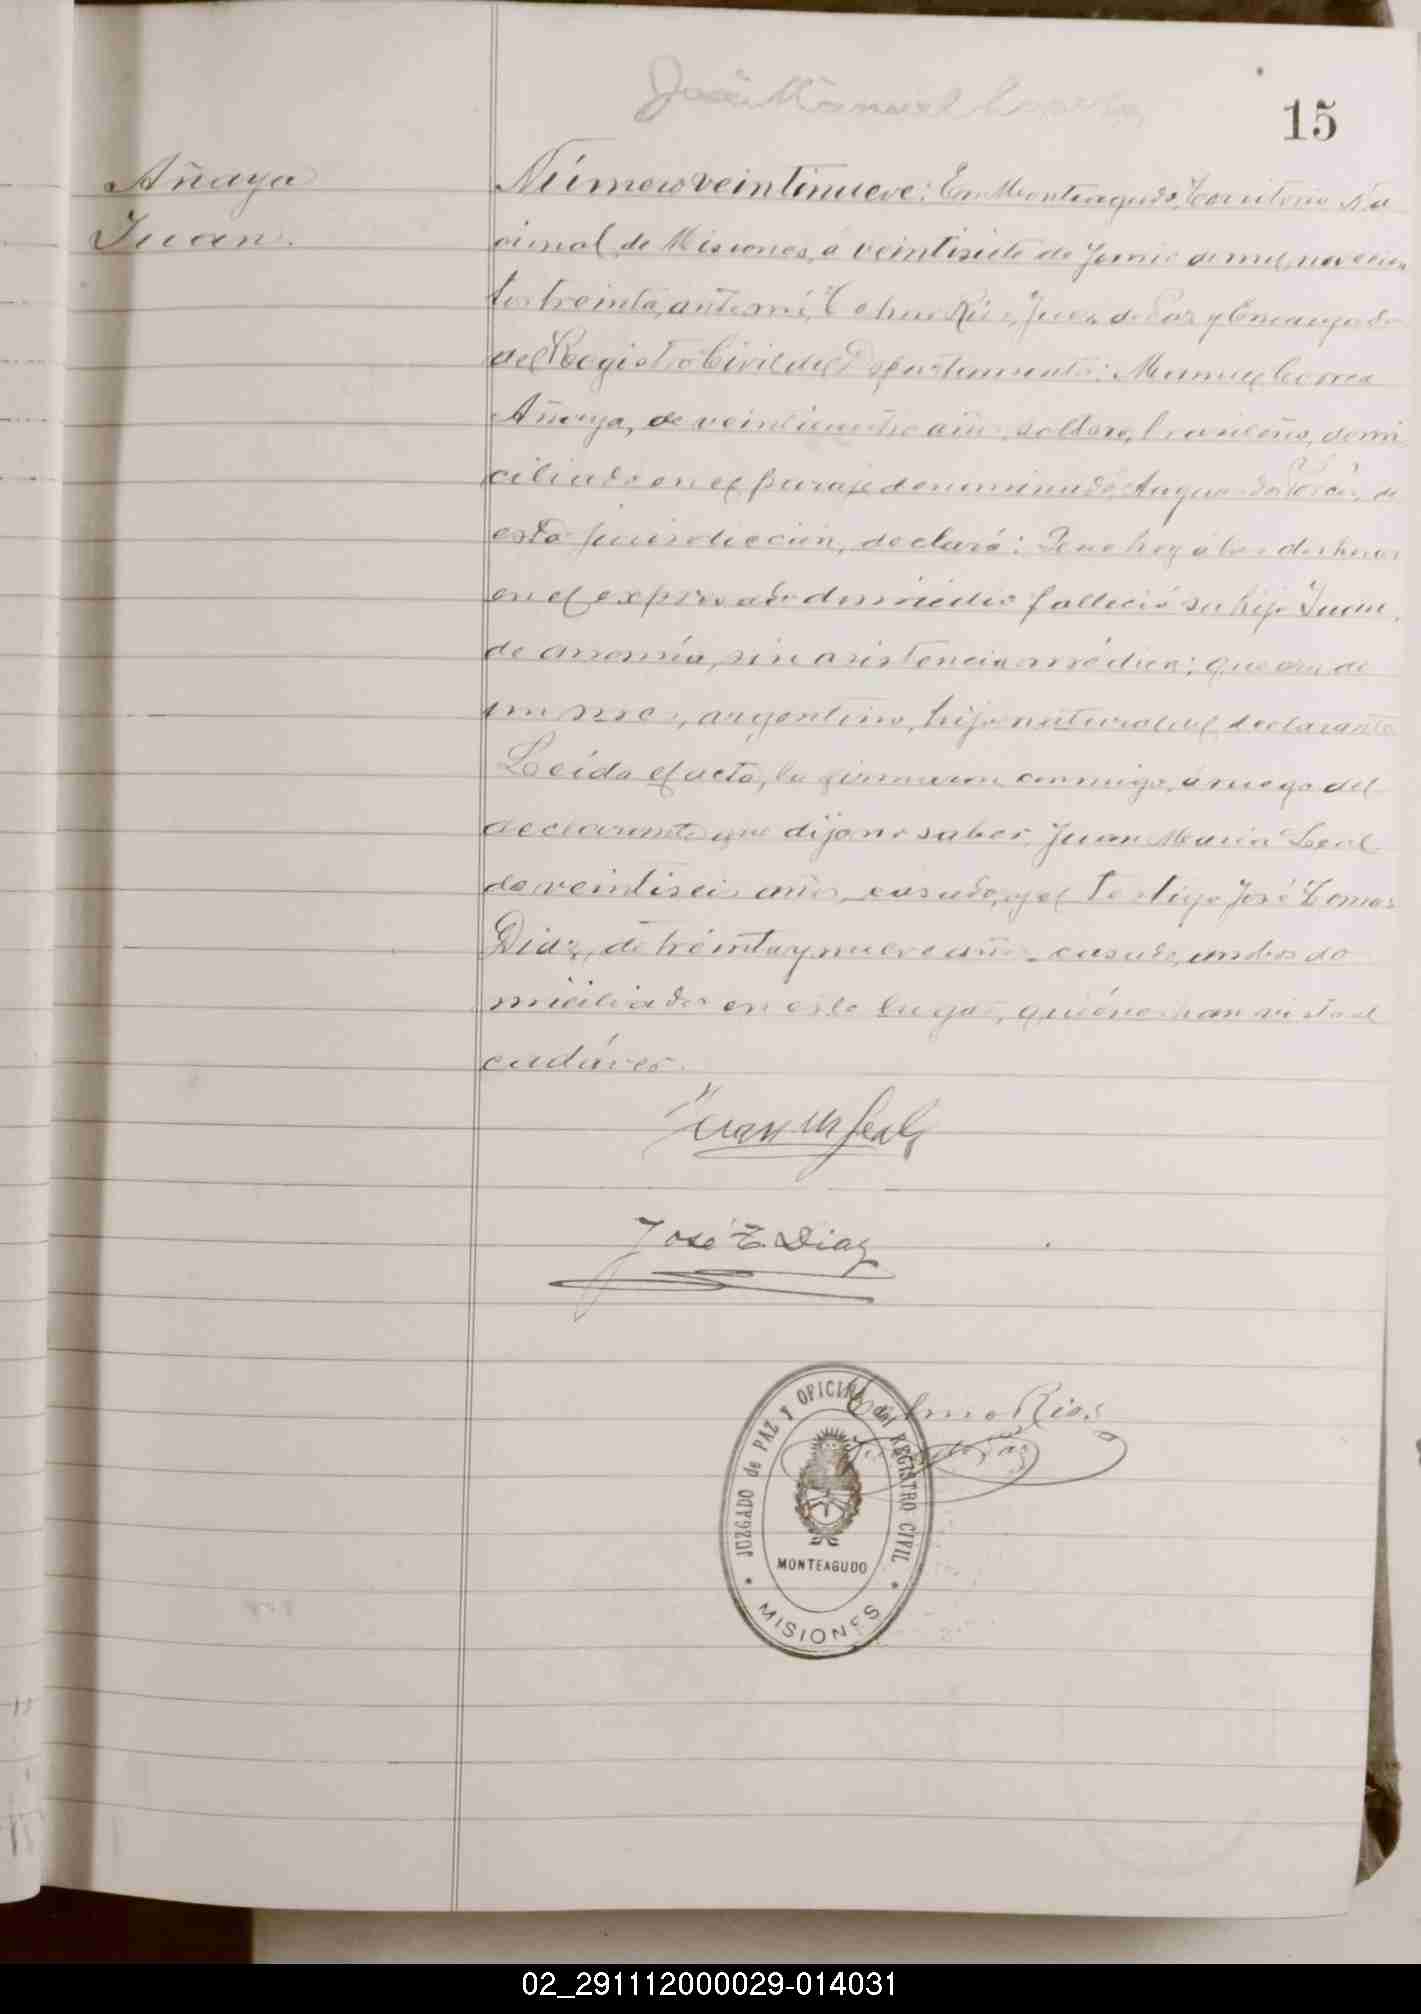 José Manuel
15
Añaya
Juan.
Número veintinueve: En Monteagudo, Territorio Na
cional de Misiones, á veintisiete de Junio de mil novecien
tos treinta, ante mí, Telmo Ríos, Juez de Paz y Encargado
del Registro Civil del Departamento: Manuel Correa
Añaya, de veinticuatro años, soltero, brasileño, domi
ciliado en el paraje denominado de
esta jurisdicción, declaró: Que hoy á las dos horas
en el expresado domicilio falleció su hijo Juan,
de anemia, sin asistencia médica; que era de
un mes, argentino, hijo natural del declarante
Leída el acta, la firmaron conmigo, á ruego del
declarante que dijo no saber, Juan María Leal
de veintiseis años, casado, y el testigo José Tomas
Diaz, de treinta y nueve años, casado, ambos do
miciliados en este lugar, quiénes han visto el
cadáver.
Juan M Leal
José T. Diaz
Telmo Rios
Juez de Paz
JUZGADO de PAZ y OFICINA del REGISTRO CIVIL
MONTEAGUDO
MISIONES
02_291112000029-014031